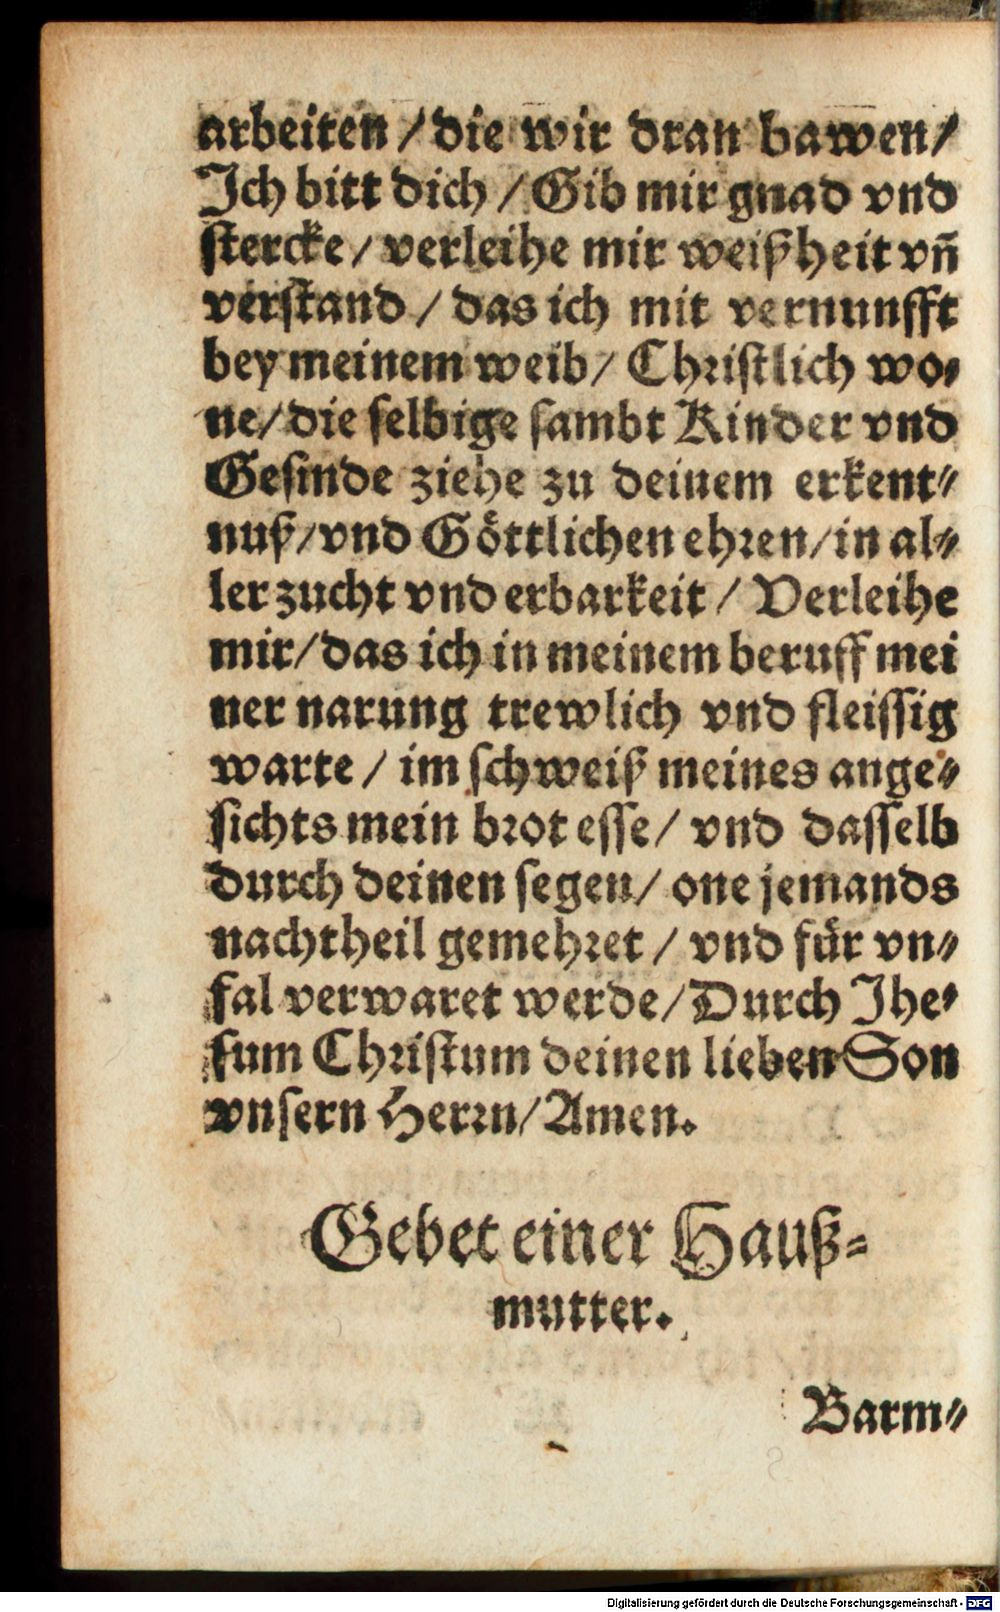 arbeiten / die wir dran bawen /
Ich bitt dich / Gib mir gnad vnd
stercke / verleihe mir weißheit vñ
verstand / das ich mit vernunfft
bey meinem weib / Christlich wo⸗
ne / die selbige sambt Kinder vnd
Gesinde ziehe zu deinem erkent⸗
nuß / vnd Göttlichen ehren / in al⸗
ler zucht vnd erbarkeit / Verleihe
mir / das ich in meinem beruff mei
ner narung trewlich vnd fleissig
warte / im schweiß meines ange⸗
sichts mein brot esse / vnd dasselb
durch deinen segen / one jemands
nachtheil gemehret / vnd für vn⸗
fal verwaret werde / Durch Ihe⸗
sum Christum deinen lieben Son
vnsern Herrn / Amen.
Gebet einer Hauß⸗
mutter.
Barm⸗
Digitalisierung gefördert durch die Deutsche Forschungsgemeinschaft - DFG